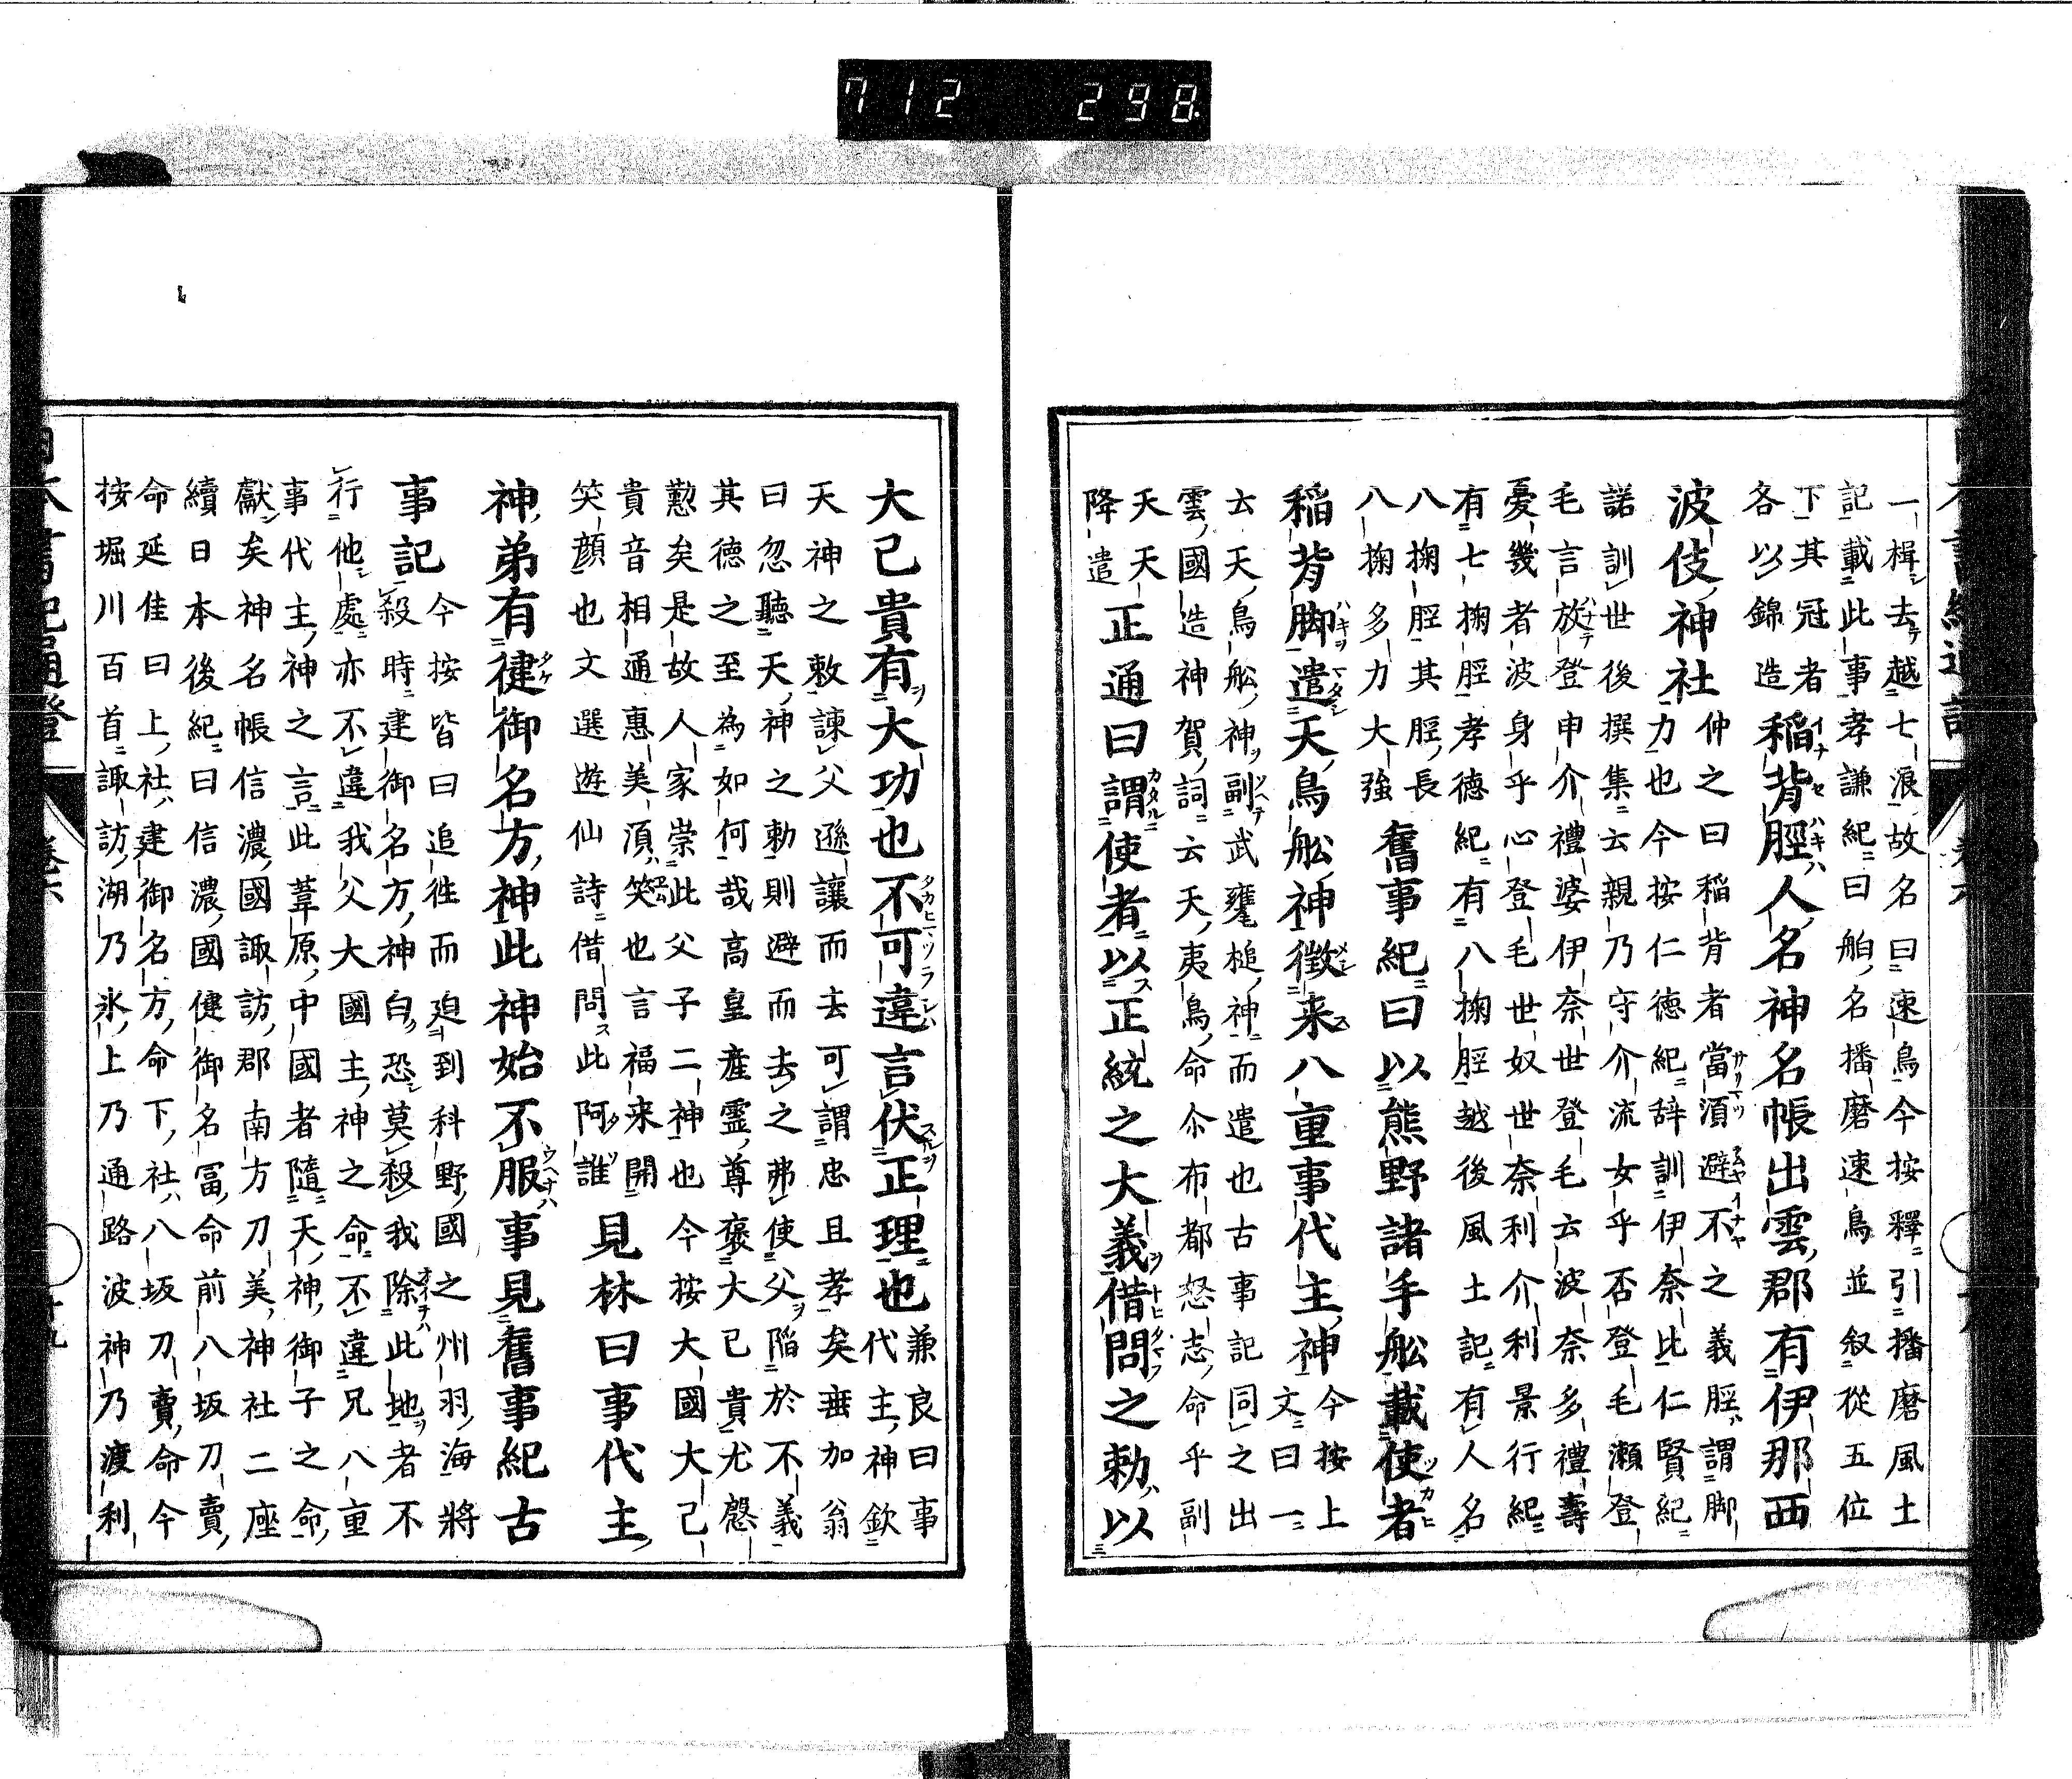 712 298.
一楫去越七浪故名曰速鳥今按釋引播磨風土
記載此事孝謙紀曰舶名播磨速鳥並叙從五位
下其冠者
各以錦造
稻背脛人名神名帳出雲郡有伊那西
波伎神社
仲之曰稻背者當須避不之義脛謂脚
力也今按仁德紀辞訓伊奈比仁賢紀
諾訓世後撰集云親乃守介流女乎否登毛瀬登
毛言放登申介禮婆伊奈世登毛云波奈多禮壽
憂幾者波身乎心登毛世奴世奈利介利景行紀
有七掬脛孝德紀有八掬脛越後風土記有人名
八掬脛其脛長
八掬多力大強
舊事紀曰以熊野諸手舩載使者
稻背脚遣天鳥舩神徴来八重事代主神
今按上
文曰一
云天鳥舩神副武甕槌神而遣也古事記同之出
雲國造神賀詞云天夷鳥命尒布都怒志命乎副
天天
降遣
正通曰謂使者以正統之大義借問之勅以
大己貴有大功也不可違言伏正理也
兼良曰事
代主神欽
天神之敕諫父遜讓而去可謂忠且孝矣垂加翁
曰忽聽天神之勅則避而去之弗使父陷於不義
其德之至為如何哉高皇産霊尊褒大己貴尤慇
懃矣是故人家崇此父子二神也今按大國大己
貴音相通惠美湏笑也言福来開
笑顔也文選遊仙詩借問此阿誰
見林曰事代主
神弟有健御名方神此神始不服事見舊事紀古
事記
今按皆曰追徃而迫到科野國之州羽海將
殺時建御名方神白恐莫殺我除此地者不
行他處亦不違我父大國主神之命不違兄八重
事代主神之言此葦原中國者隨天神御子之命
獻矣神名帳信濃國諏訪郡南方刀美神社二座
續日本後紀曰信濃國健御名冨命前八坂刀賣
命延佳曰上社建御名方命下社八坂刀賣命今
按堀川百首諏訪湖乃氷上乃通路波神乃渡利